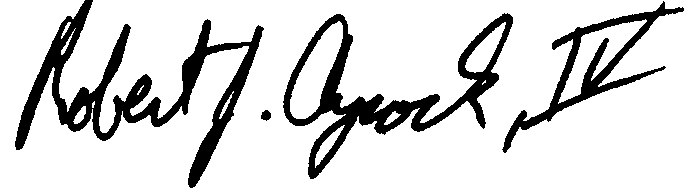 Robert J. Aycock, IV